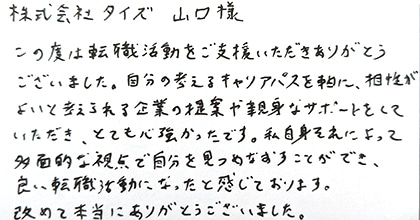 株式会社 タイズ 山口様
この度は転職活動をご支援いただきありがとう
ございました。自分の考えるキャリアパスを軸に、相性が
よいと考えられる企業の提案や親身なサポートをして
いただき、とても心強かったです。私自身それによって
多面的な視点で自分を見つめなおすことができ、
良い転職活動になったと感じております。
改めて本当にありがとうございました。